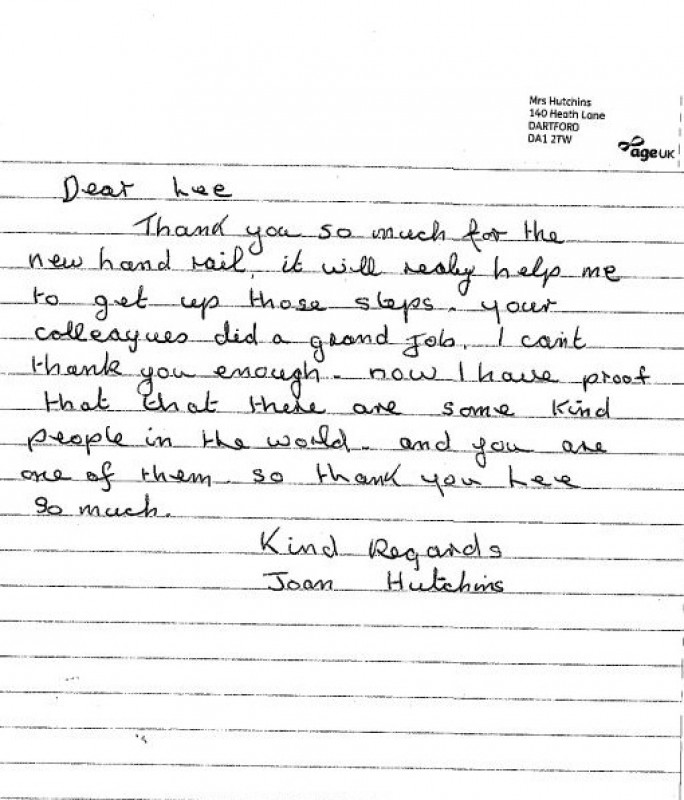 Mrs Hutchins
140 Heath Lane
DARTFORD
DA1 2TW
ageUK
Dear Lee
Thank you so much for the
new hand rail, it will realy help me
to get up those steps. your
colleagues did a grand job. I can't
thank you enough. now I have proof
that that there are some kind
people in the world. and you are
one of them. so thank you Lee
so much.
Kind Regards
Joan Hutchins